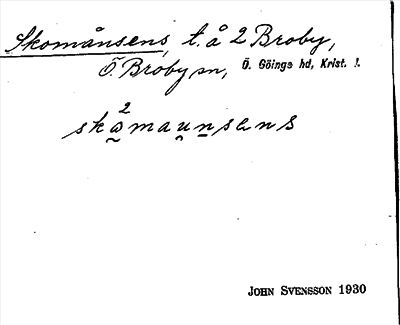 Skomånsens, t. å 2 Broby,
Ö. Broby sn, Ö. Göinge hd, Krist. l.
2
skamaunsens
JOHN SVENSSON 1930